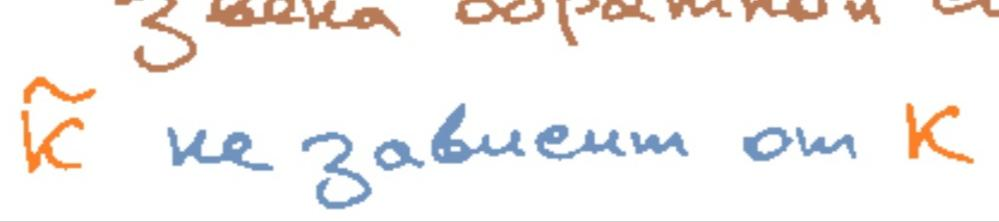 звена обратной
K̃ не зависит от K